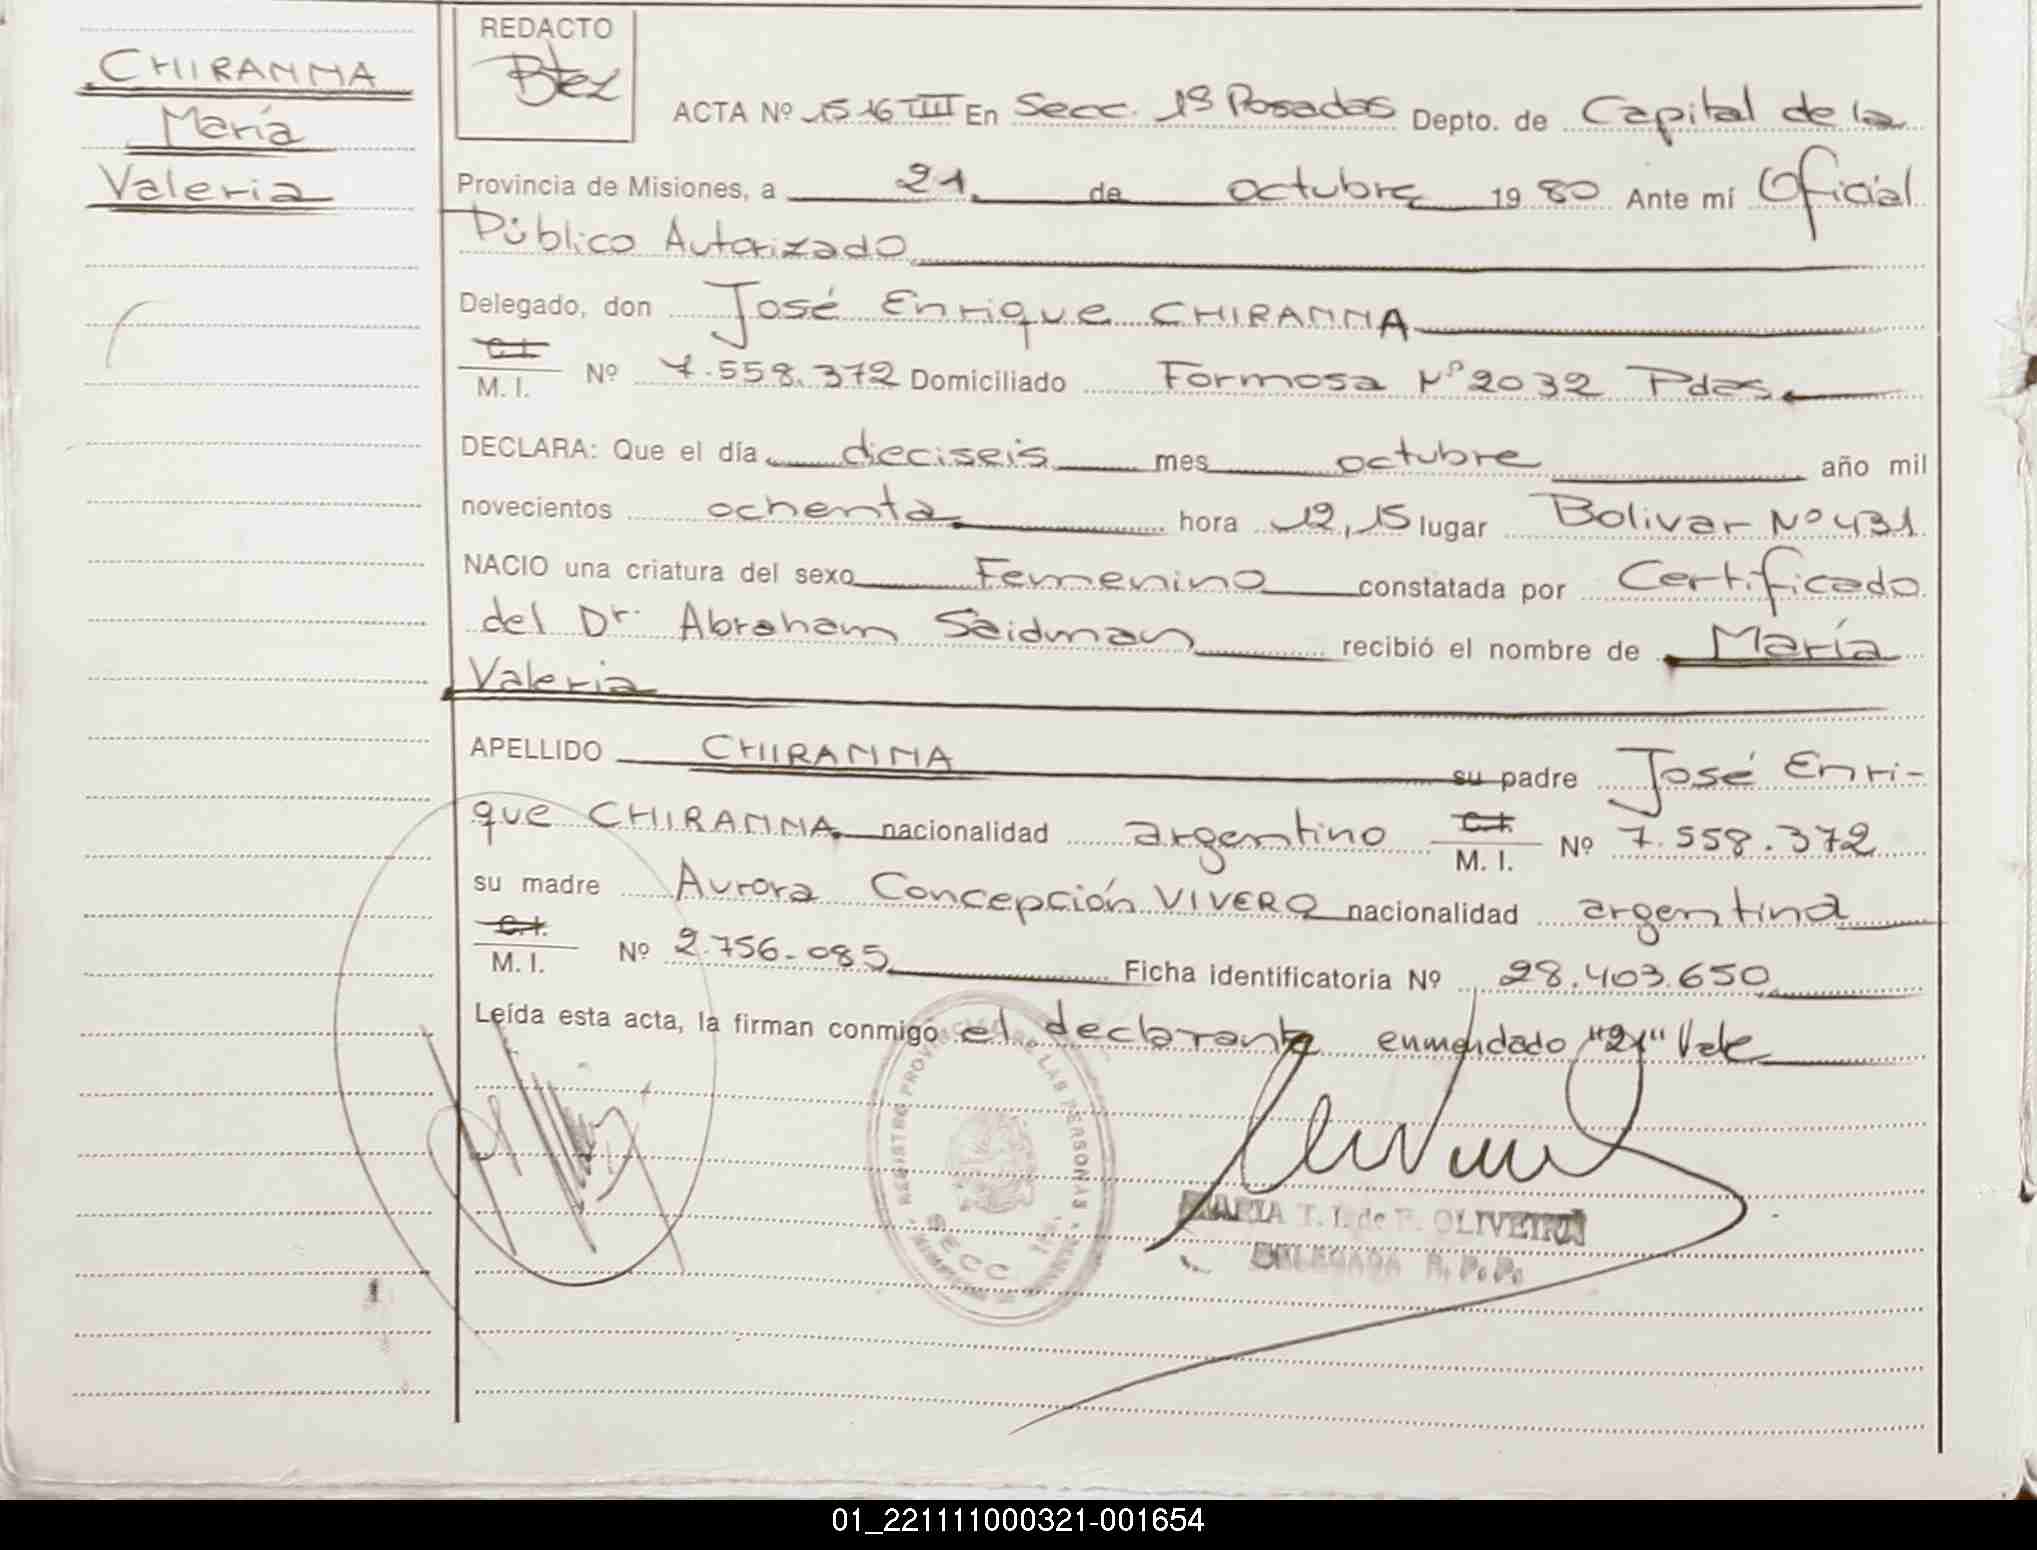 CHIRANNA
María
Valeria
REDACTO
Btez
ACTA Nº 1516 IIII En Secc. 1ª Posadas Depto. de Capital de la
Provincia de Misiones, a 21 de octubre 1980 Ante mí Oficial
Público Autorizado
Delegado, don José Enrique CHIRANNA
C.I.
M. I. Nº 7.558.372 Domiciliado Formosa Nº 2032 Pdas
DECLARA: Que el día dieciseis mes octubre año mil
novecientos ochenta hora 12,15 lugar Bolivar Nº 431
NACIO una criatura del sexo Femenino constatada por Certificado
del Dr. Abraham Saidman recibió el nombre de María
Valeria
APELLIDO CHIRANNA su padre José Enri-
que CHIRANNA nacionalidad argentino C.I. M. I. Nº 7.558.372
su madre Aurora Concepción VIVERO nacionalidad argentina
C.I.
M. I. Nº 2.756.085 Ficha identificatoria Nº 28.403.650
Leída esta acta, la firman conmigo el declarante enmendado "21" Vale
REGISTRO PROVINCIAL DE LAS PERSONAS
SECC
MARIA T. I. de F. OLIVEIRA
DELEGADA R. P. P.
01_221111000321-001654